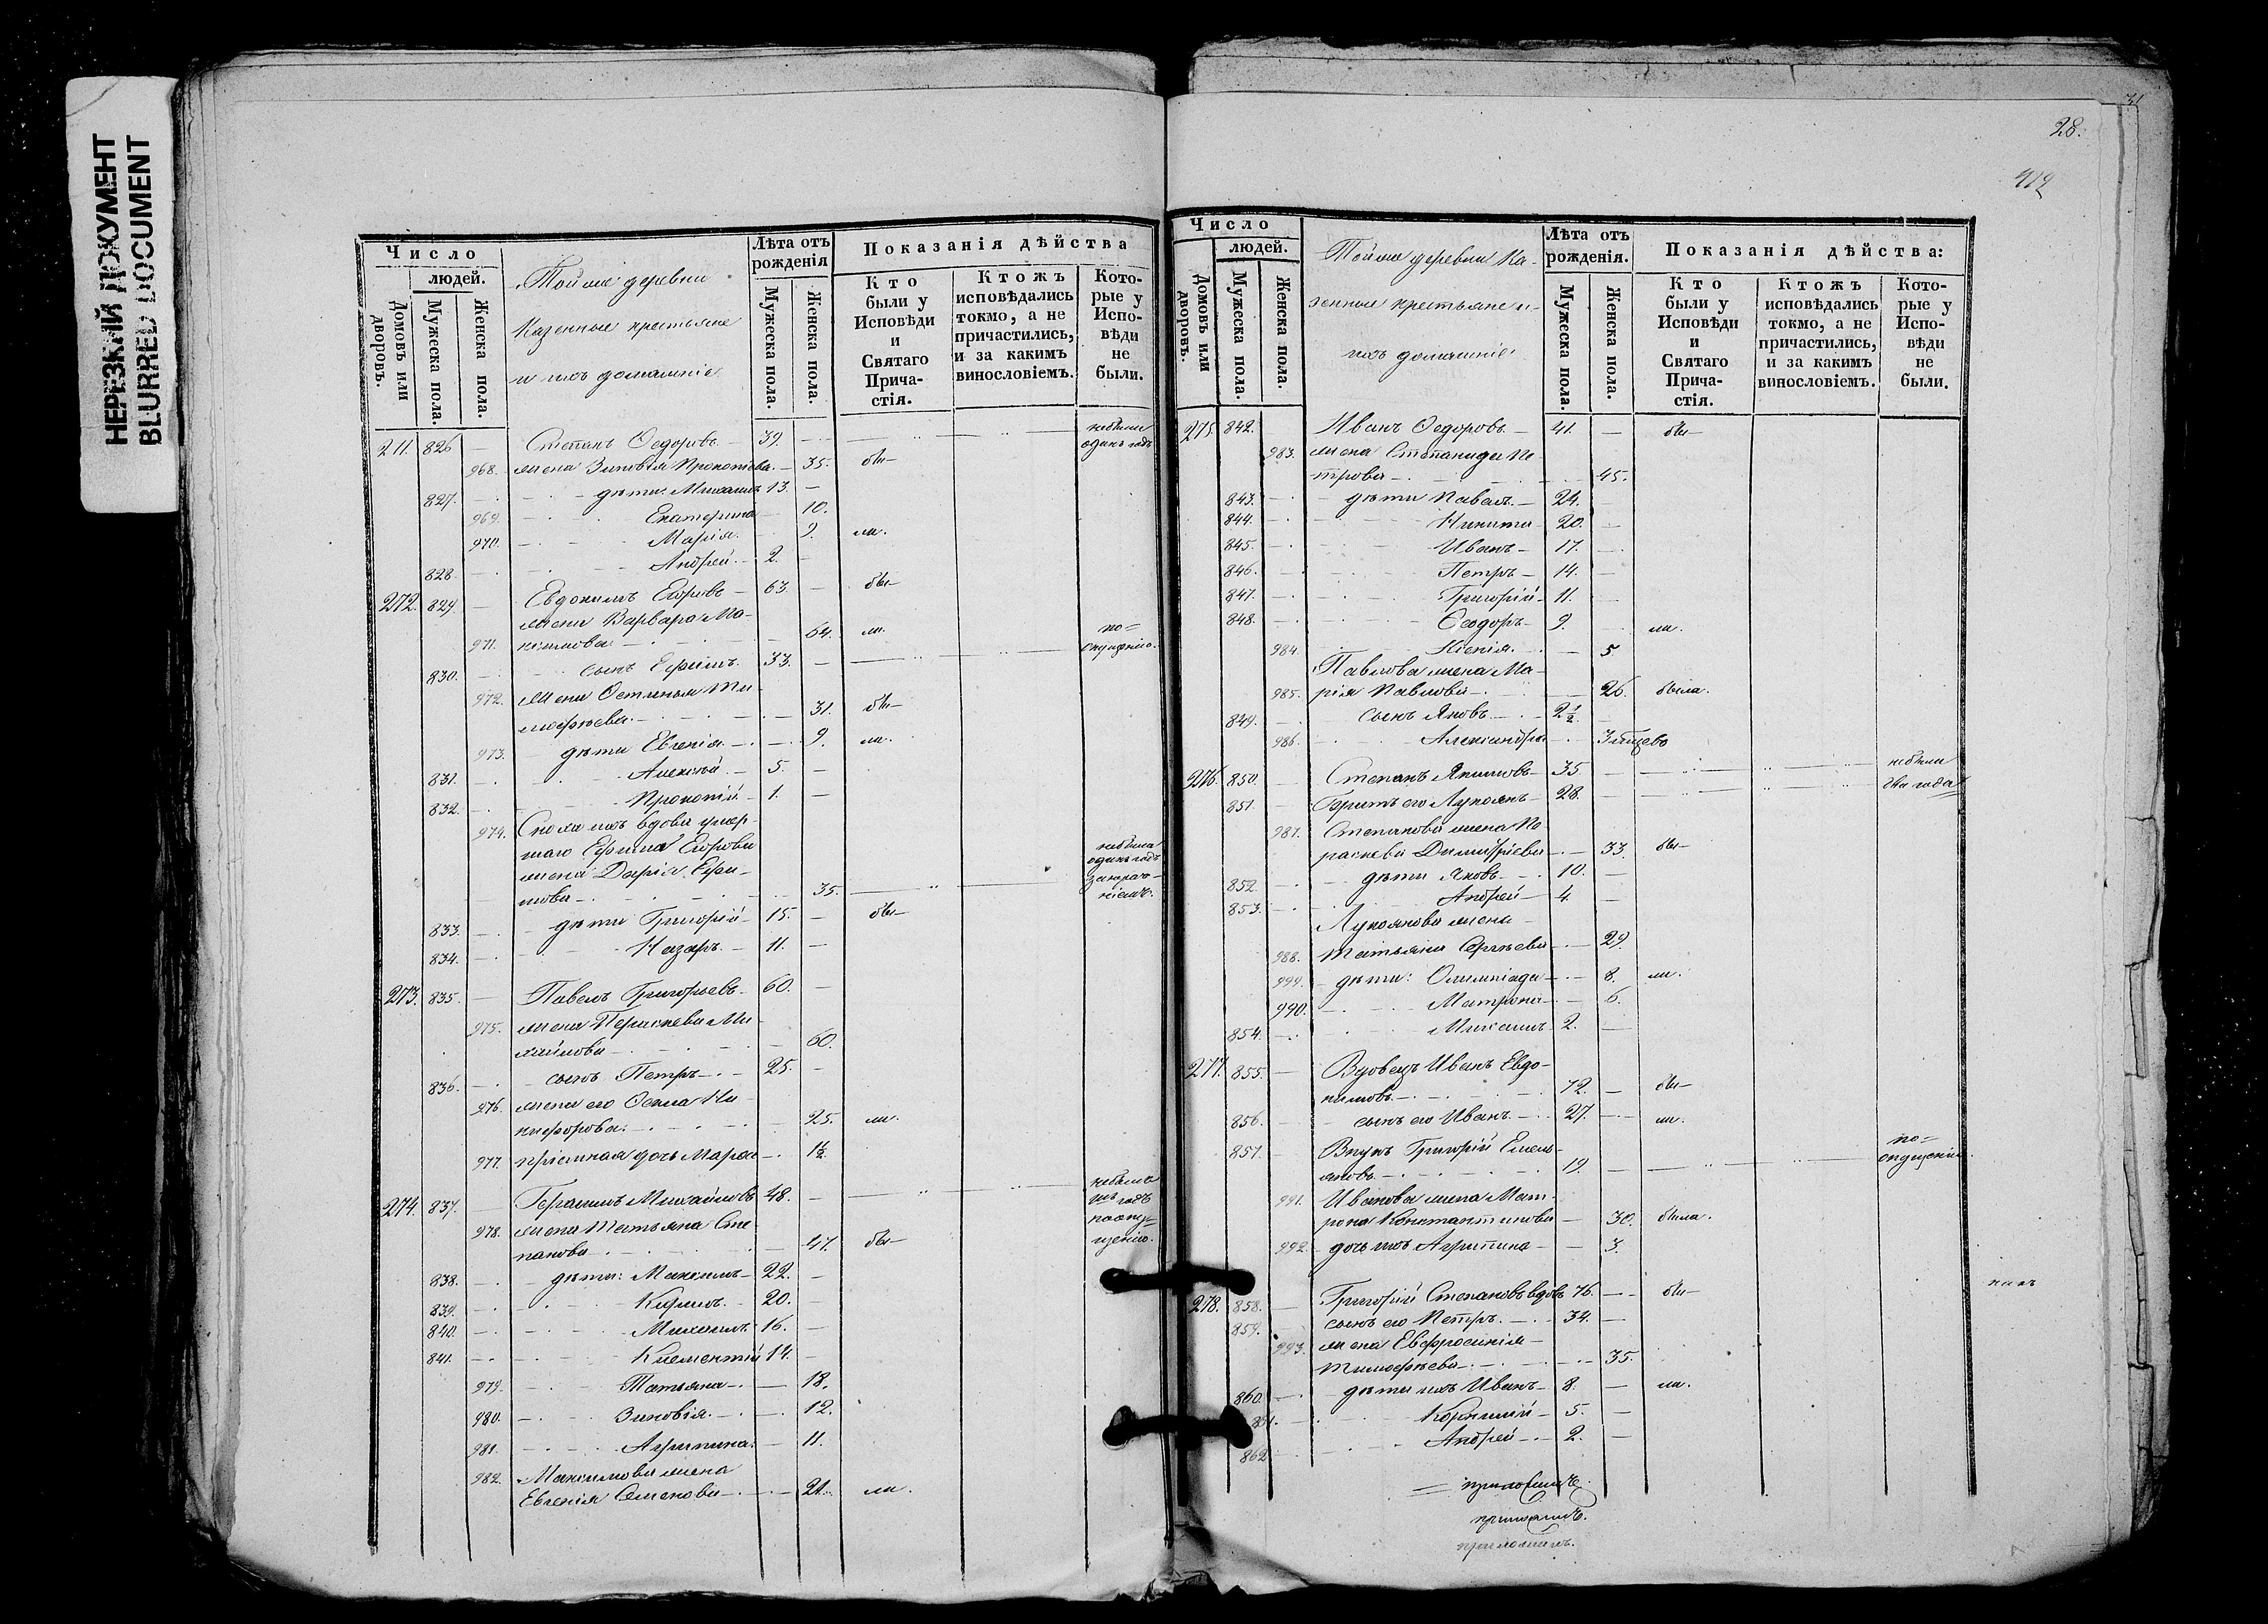 НЕРЕЗКИЙ ДОКУМЕНТ
BLURRED DOCUMENT
Число
людей.
Домовъ или дворовъ.
Мужеска пола.
Женска пола.
Той же деревни
Казенные крестьяне
и ихъ домашніе
Лѣта отъ рожденія
Мужеска пола.
Женска пола.
Показанія дѣйства
Кто были у Исповѣди и Святаго Причастія.
Ктожъ исповѣдались токмо, а не причастились, и за какимъ винословіемъ.
Которые у Исповѣди не были.
211. 826 Степанъ Ѳедоровъ 39. небыли одинъ годъ
968. жена Зиновія Прокопіева. 35. бы
827. дѣти: Михаилъ 13.
969. Екатерина 10.
970. Марія. 9. мл.
828. Андрей. 2.
272. 829. Евдокимъ Егоровъ 63. бы
жена Варвара Ма-
971. ксимова. 64. мл. по=
830. сынъ Ефимъ. 33. опущенію.
972. жена Устинья Ти-
мофѣева. 31. бы
973. дѣти Евгенія 9. мл.
831. Алексѣй. 5.
832. Прокопій. 1.
974. Снохи ихъ вдова умер-
шаго Ефима Егорова
жена Дарія Ефи-
мова 35. небыла одинъ годъ
833. дѣти Григорій 15. бы
834. Назаръ. 11.
273. 835. Павелъ Григорьевъ 60.
975. жена Параскева Ми-
хайлова 60.
836. сынъ Петръ 25.
976. жена его Ѳекла Ни-
кифорова. 25. мл.
977. пріемная дочь Марѳа 1½.
274. 837. Герасимъ Михайловъ 48. небыло
978. жена Татьяна Сте-
панова 47. бы поопу-
щенію.
838. дѣти: Максимъ 22.
839. Кирилъ. 20.
840. Михаилъ 16.
841. Климентій 14.
979. Татьяна 18.
980. Зиновія. 12.
981. Агрипина. 11.
982. Максимова жена
Евгенія Семенова 21. мл.
31
28.
Число
людей.
Домовъ или дворовъ.
Мужеска пола.
Женска пола.
Той же деревни Ка-
зенные крестьяне и
ихъ домашніе
Лѣта отъ рожденія.
Мужеска пола.
Женска пола.
Показанія дѣйства:
Кто были у Исповѣди и Святаго Причастія.
Ктожъ исповѣдались токмо, а не причастились, и за какимъ винословіемъ.
Которые у Исповѣди не были.
275. 842. Иванъ Ѳедоровъ 41. бы
983. жена Степанида Пе-
трова 45.
843. дѣти Павелъ. 24.
844. Никита 20.
845. Иванъ 17.
846. Петръ 14.
847. Григорій 11.
848. Ѳеодоръ 9. мл.
984. Ксенія. 5
Павлова жена Ма-
985. рія Павлова 26. была.
849. сынъ Яковъ 2½
986. Александра
276. 850. Степанъ Якимовъ 35 небыли
851. Братъ его Лукоянъ 28. два года
987. Степанова жена Па-
раскева Димитріева 33. бы
852. дѣти Яковъ 10.
853. Андрей 4.
Лукоянова жена
988. Татьяна Сергѣева 29.
999. дѣти: Олимпіада 8. мл.
990. Матрона 6.
854. Михаилъ 2.
277. 855. Вдовецъ Иванъ Евдо-
кимовъ 72. бы
856. сынъ его Иванъ 27. мл.
857. Внукъ Григорій Емель-
яновъ 19. по= опущенію
991. Иванова жена Мат-
рона Константинова 30. была.
992. дочь ихъ Агрипина 3.
278. 858. Григорій Степановъ вдовъ 76. бы
859. сынъ его Петръ. 34.
993. жена Евфросинія
Тимофѣева 35.
860. дѣти ихъ Иванъ 8. мл.
861. Корнилій 5.
862 Андрей 2.